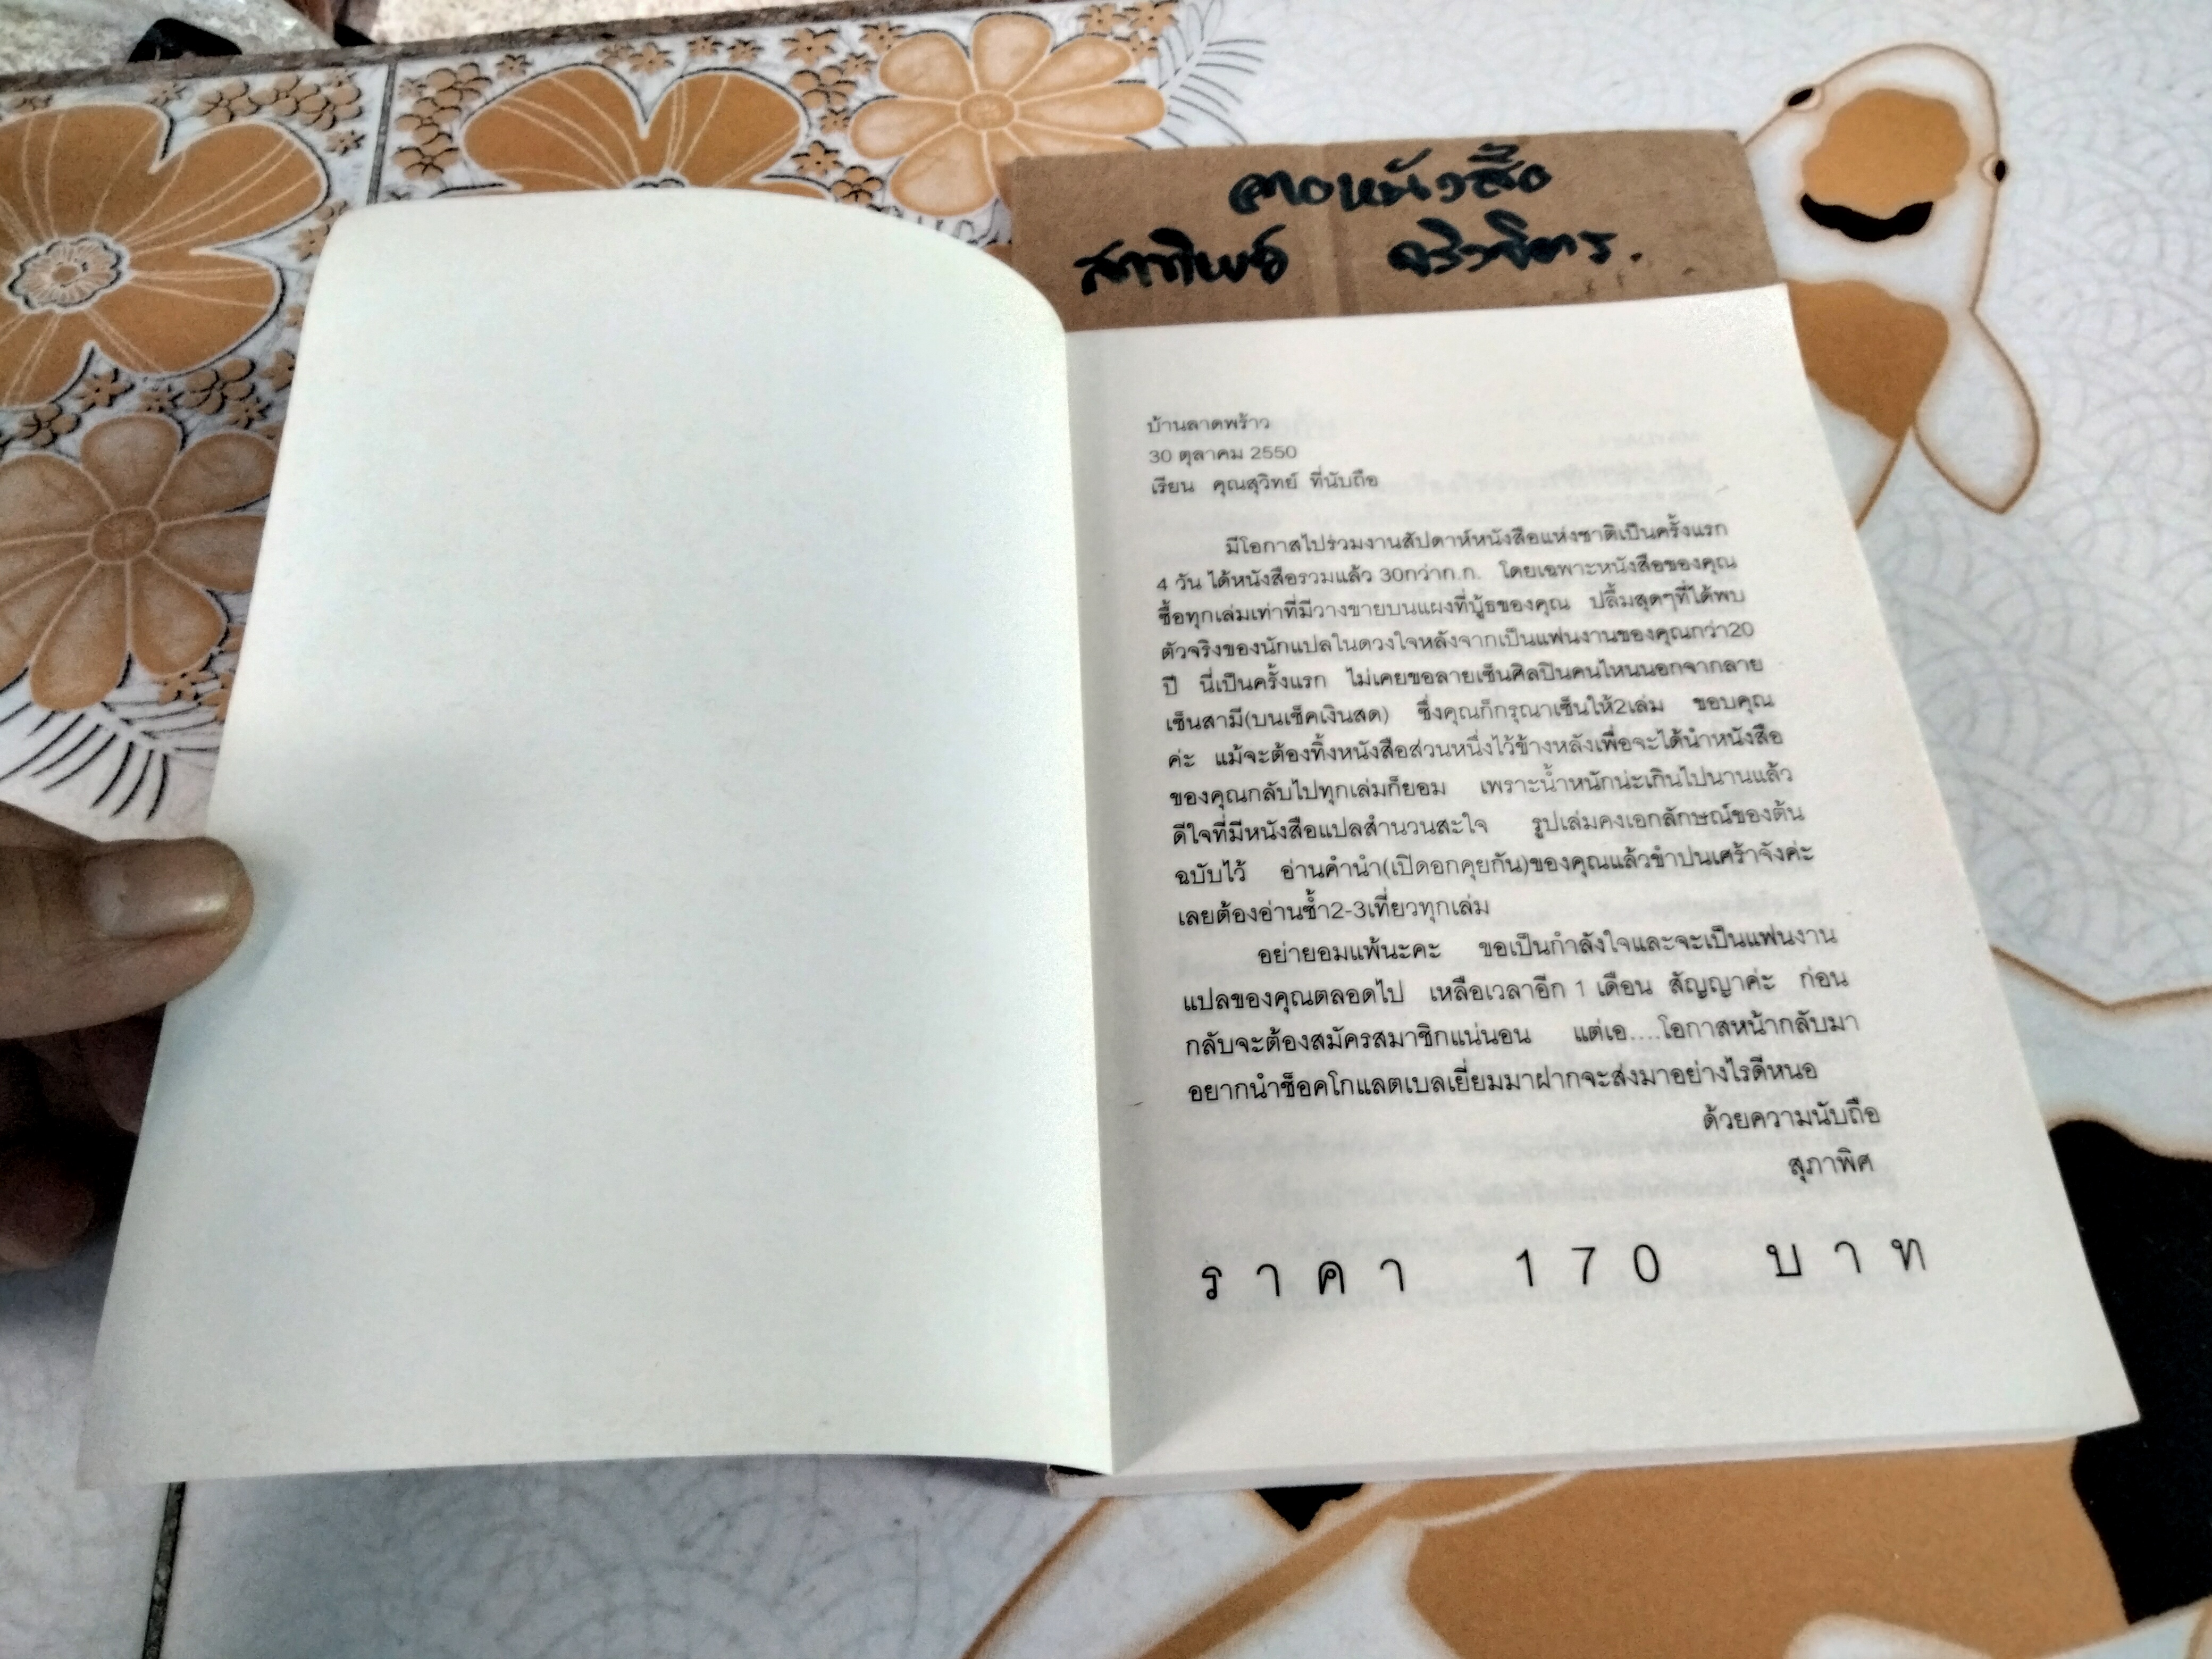 ขายหนังสือ
บ้านลาดพร้าว
30 ตุลาคม 2550
เรียน คุณสุวิทย์ ที่นับถือ
มีโอกาสไปร่วมงานสัปดาห์หนังสือแห่งชาติเป็นครั้งแรก
4 วัน ได้หนังสือรวมแล้ว 30กว่าก.ก. โดยเฉพาะหนังสือของคุณ
ซื้อทุกเล่มเท่าที่มีวางขายบนแผงที่บู้ธของคุณ ปลื้มสุดๆที่ได้พบ
ตัวจริงของนักแปลในดวงใจหลังจากเป็นแฟนงานของคุณกว่า20
ปี นี่เป็นครั้งแรก ไม่เคยขอลายเซ็นศิลปินคนไหนนอกจากลาย
เซ็นสามี(บนเช็คเงินสด) ซึ่งคุณก็กรุณาเซ็นให้2เล่ม ขอบคุณ
ค่ะ แม้จะต้องทิ้งหนังสือส่วนหนึ่งไว้ข้างหลังเพื่อจะได้นำหนังสือ
ของคุณกลับไปทุกเล่มก็ยอม เพราะน้ำหนักน่ะเกินไปนานแล้ว
ดีใจที่มีหนังสือแปลสำนวนสะใจ รูปเล่มคงเอกลักษณ์ของต้น
ฉบับไว้ อ่านคำนำ(เปิดอกคุยกัน)ของคุณแล้วขำปนเศร้าจังค่ะ
เลยต้องอ่านซ้ำ2-3เที่ยวทุกเล่ม
อย่ายอมแพ้นะคะ ขอเป็นกำลังใจและจะเป็นแฟนงาน
แปลของคุณตลอดไป เหลือเวลาอีก 1 เดือน สัญญาค่ะ ก่อน
กลับจะต้องสมัครสมาชิกแน่นอน แต่เอ....โอกาสหน้ากลับมา
อยากนำช็อคโกแลตเบลเยี่ยมมาฝากจะส่งมาอย่างไรดีหนอ
ด้วยความนับถือ
สุภาพิศ
ราคา 170 บาท